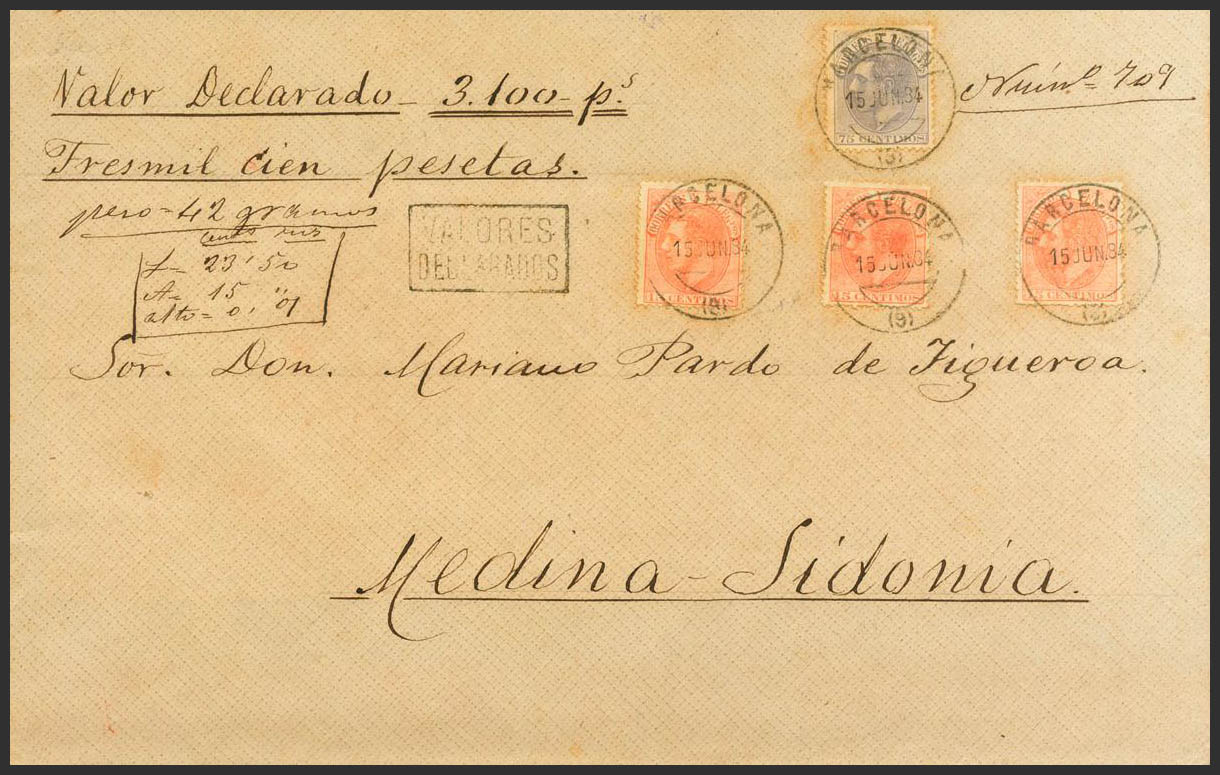 Valor Declarado - 3.100 - p.s
Núm.o 709
Tresmil cien pesetas.
peso = 42 gramos
L = 23'50
A = 15 "
alto = 0,"01
VALORES
DECLARADOS
BARCELONA
15 JUN. 84
75 CENTIMOS
(9)
BARCELONA
15 JUN. 84
15 CENTIMOS
(9)
BARCELONA
15 JUN. 84
15 CENTIMOS
(9)
BARCELONA
15 JUN. 84
15 CENTIMOS
(9)
Sor. Don. Mariano Pardo de Figueroa.
Medina-Sidonia.